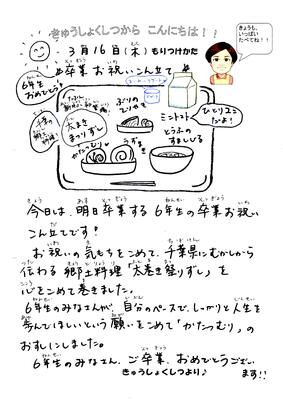 きゅうしょくしつから こんにちは！！
きょうも、
いっぱい
たべてね！！
3月16日（木）もりつけかた
卒業お祝いこん立て
6年生
おめでとう
ぶりの
太まき
まつりずし
かたつむり
うずまき
ミニトマト
ひとり2こ
だよ！
とうふの
すましじる
今日は、明日卒業する6年生の卒業お祝い
こん立てです！
お祝いの気もちをこめて、千葉県にむかしから
伝わる郷土料理「太巻き祭りずし」を
心をこめて巻きました。
6年生のみなさんが、自分のペースで、しっかりと人生を
歩んでほしいという願いをこめて「かたつむり」の
おすしにしました。
6年生のみなさん、ご卒業、おめでとうござい
ます！！
きゅうしょくしつより♪